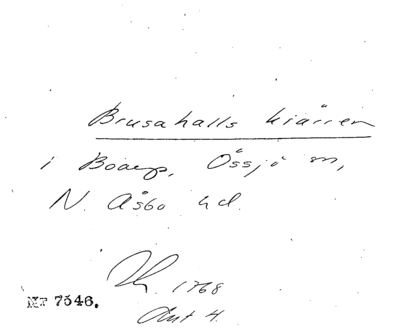 Brusahalls kiärren
i Boarp, Össjö sn,
N. Åsbo hd.
1768
Akt 4.
NR 7546.